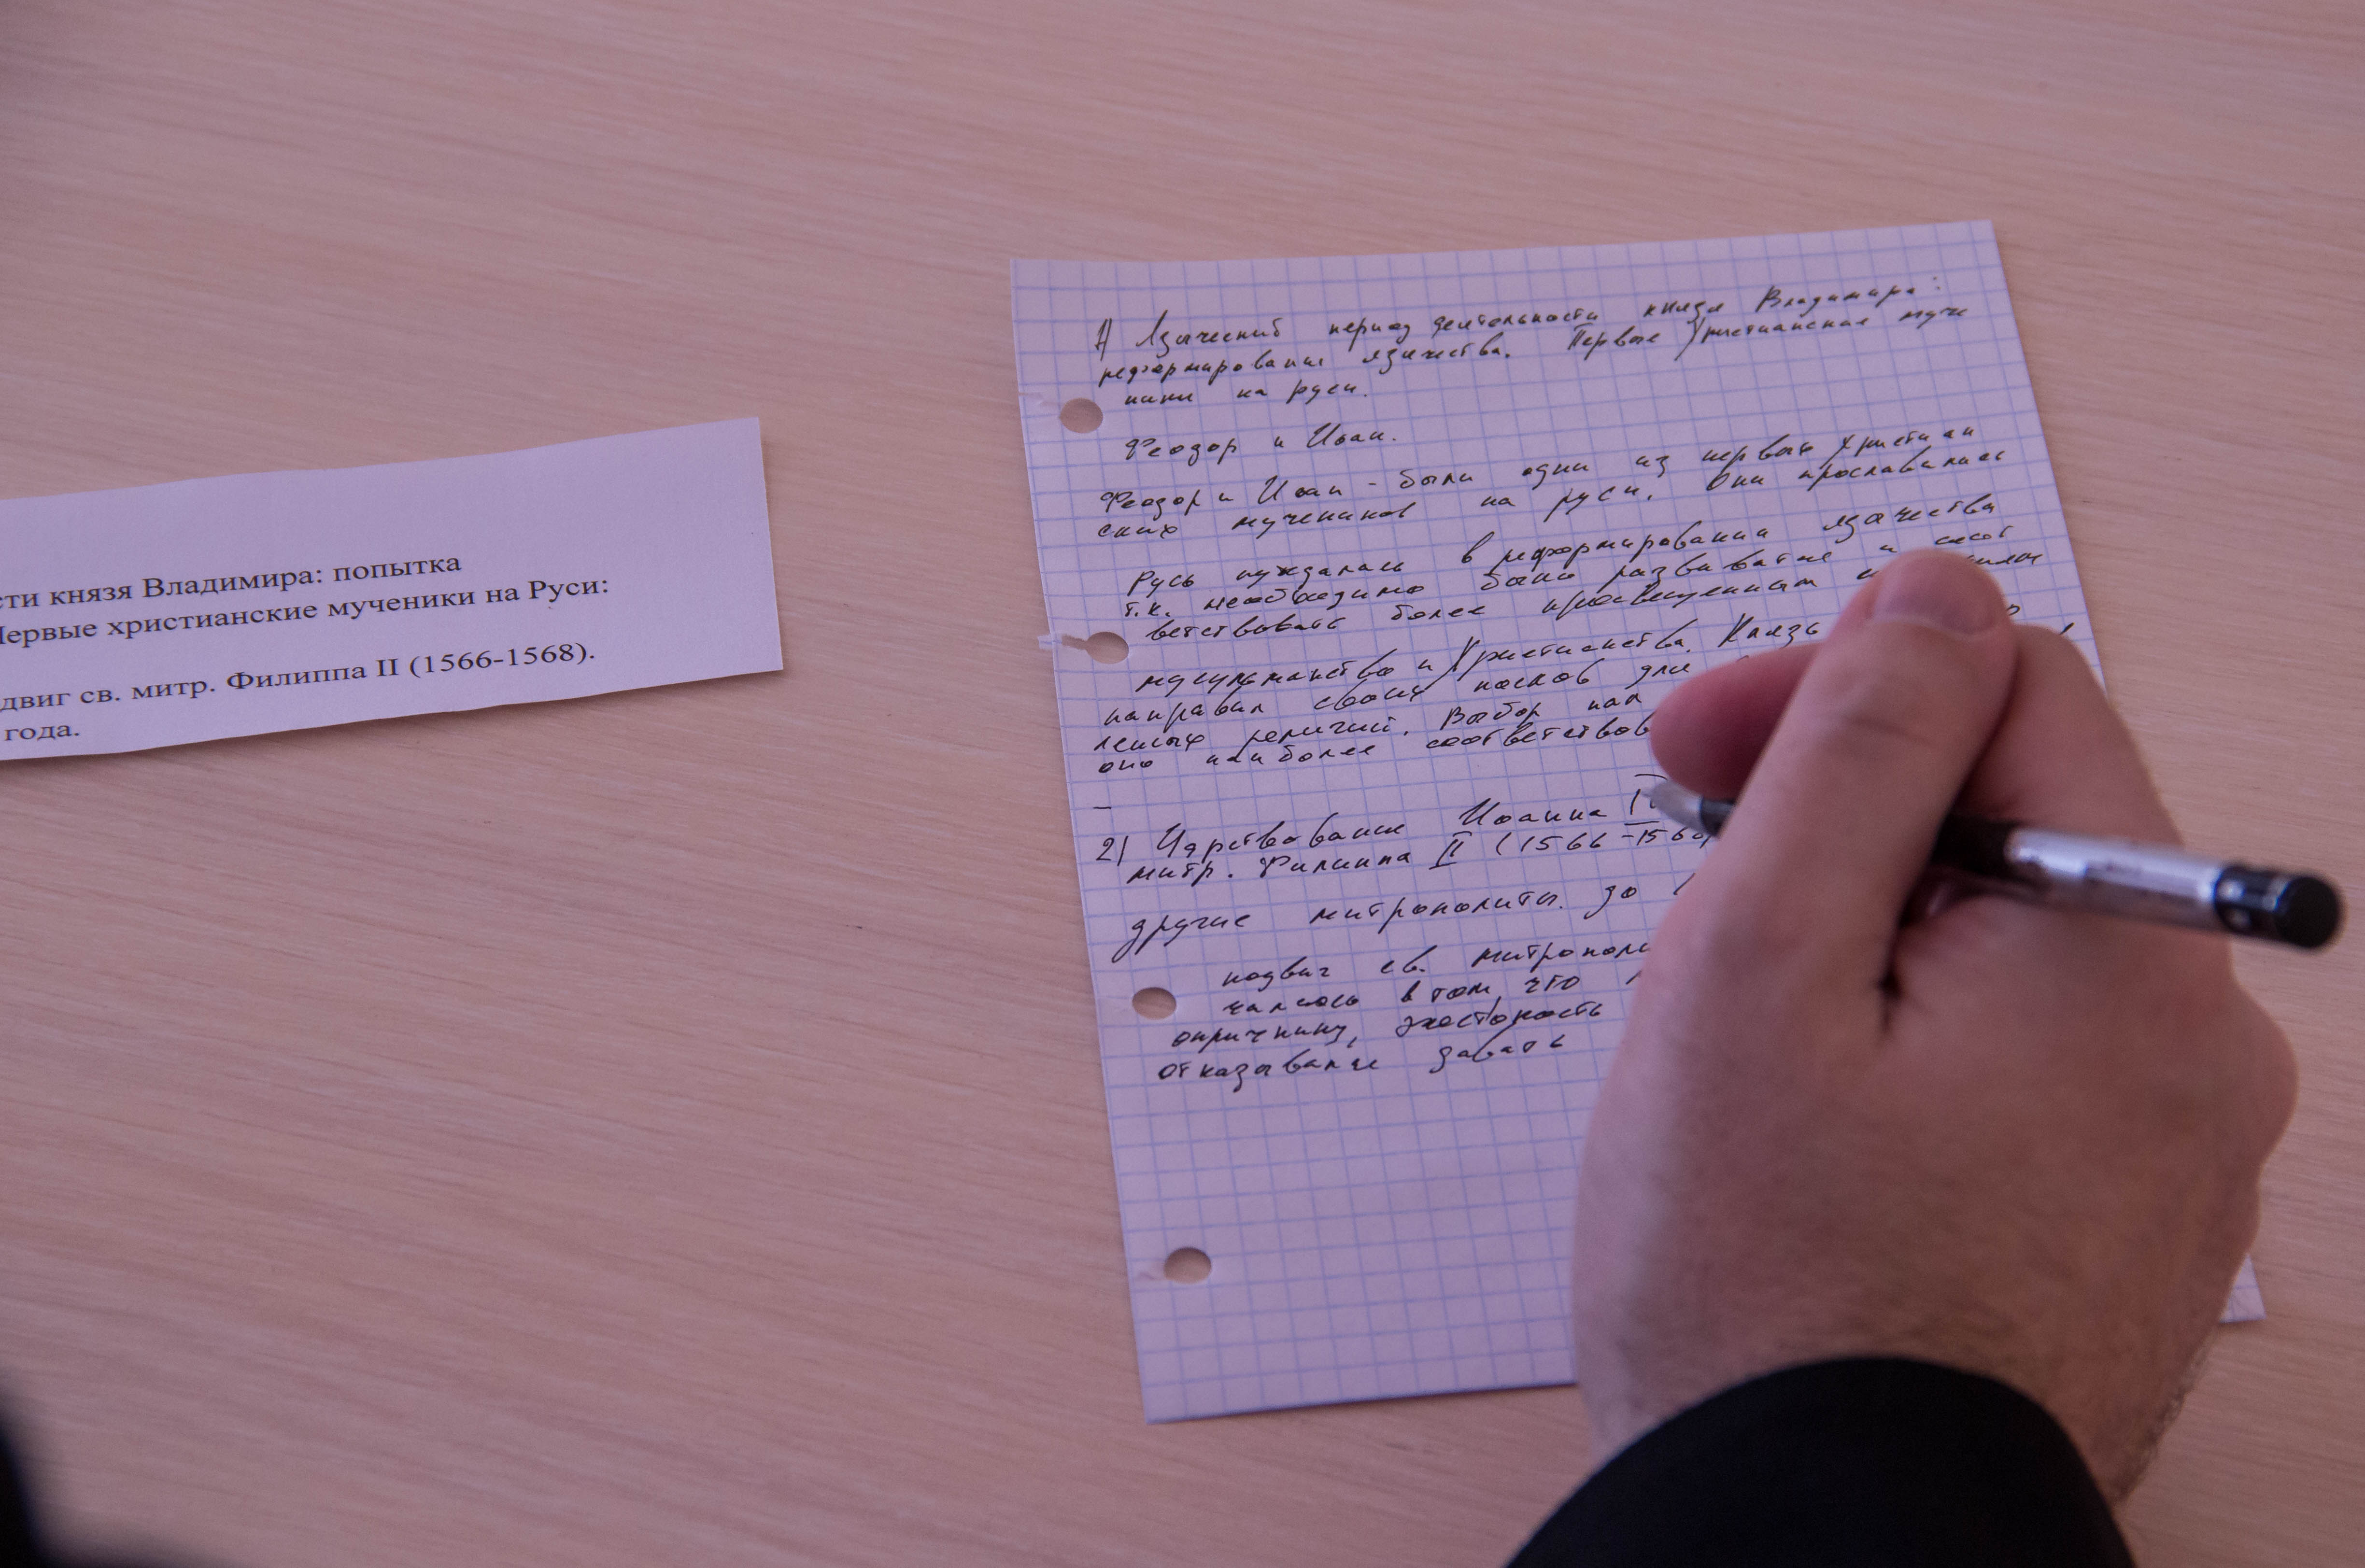 сти князя Владимира: попытка
Первые христианские мученики на Руси:
двиг св. митр. Филиппа II (1566-1568).
года.
1) Языческий период деятельности князя Владимира:
реформирования язычества. Первые Христианские муче
ники на руси.
Феодор и Иоан.
Феодор и Иоан - были одни из первых христиан
ских мучеников на руси. Они прославились
Русь нуждалась в реформировании язычества
т.к. необходимо было развиватие и
ветствовать более просвещенным
мусульманства и Христианства. Князь
направил своих послов для
личных религий. Выбор пал
оно наиболее соответствов
2) Царствование Иоанна IV
митр. Филиппа II (1566-156
другие митрополиты. до
подвиг св. митропол
чалось в том, что
опричнину, жестокость
отказывался давать